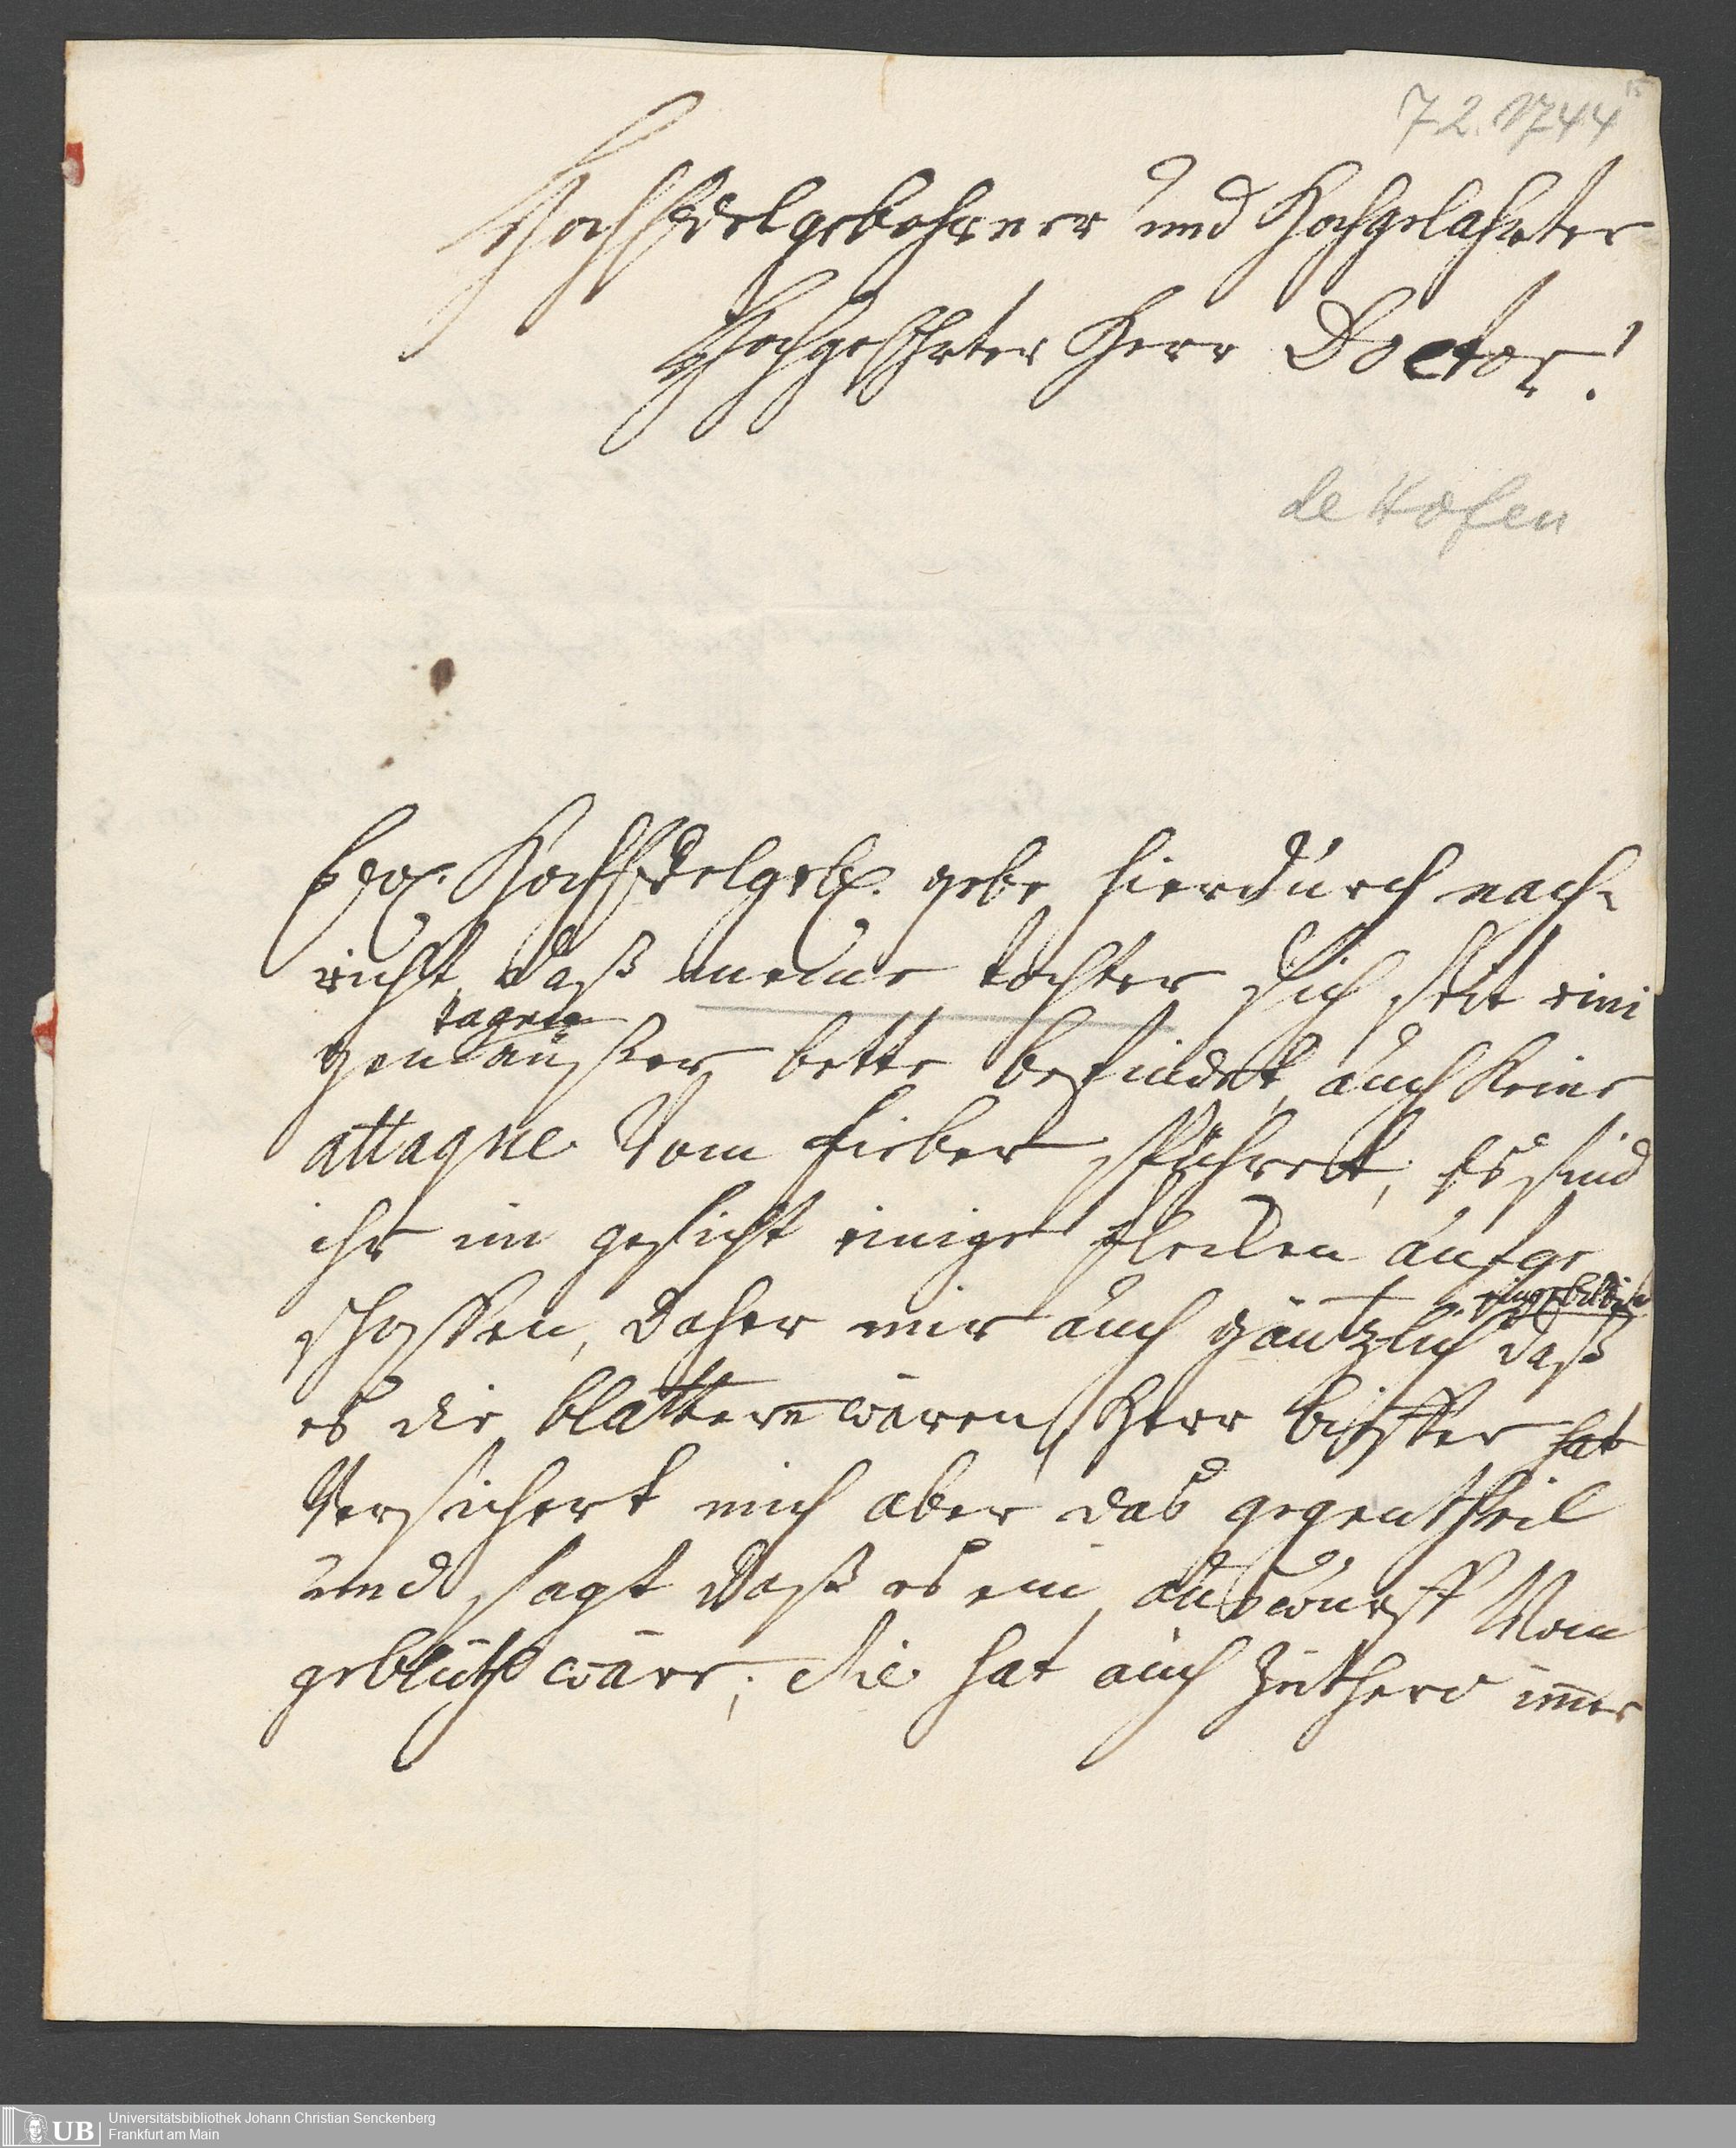 15
7.2.1744
HochEdelgebohrner und Hochgelahrter
Hochgeehrter Herr Doctor!
de Hofen
Ew. HochEdelgeb. gebe hierdurch nach-
richt, daß meine tochter sich seit eini
tagen
gen außer bette befindet, auch keine
attaque vom fieber spühret, Es sind
ihr im gesicht einige flecken aufge
schossen, daher mir auch gäntzlich eingebildet
daß
es die blattern wären, Herr büsser hat
versichert mich aber das gegentheil
und sagt daß es ein auswurff vom
geblüth wäre; Sie hat auch zeithero im̅er
UB Universitätsbibliothek Johann Christian Senckenberg
Frankfurt am Main